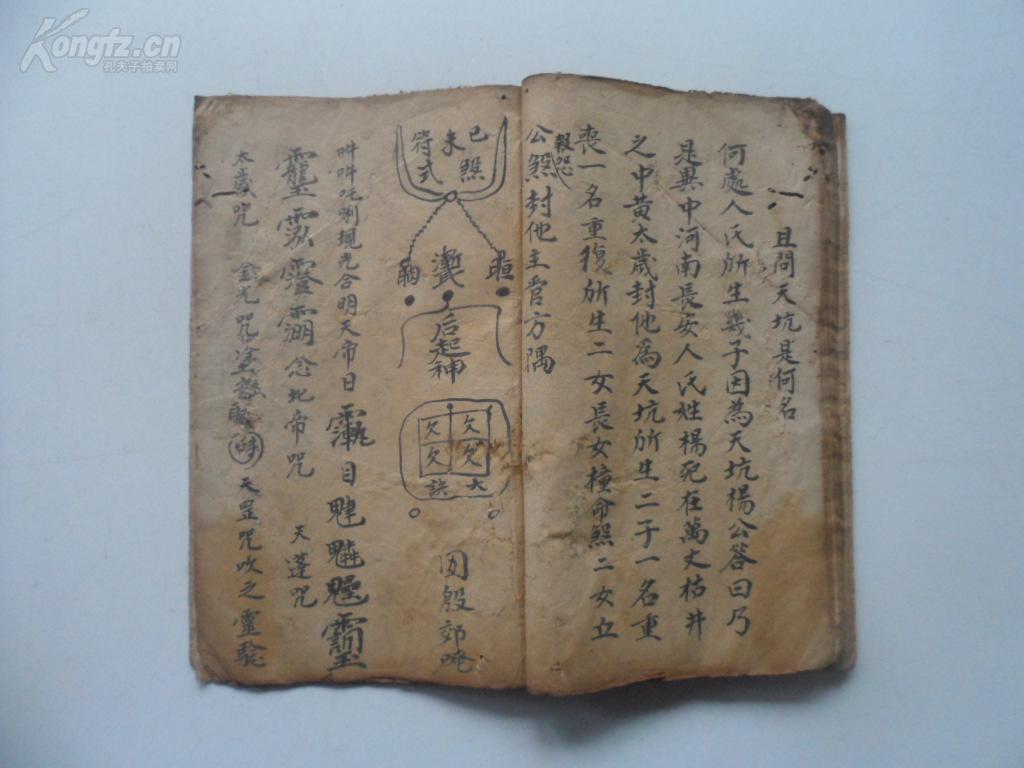 Kongfz.cn
孔夫子拍卖网
且問天坑是何名
何處人氏所生幾子因為天坑楊公答曰乃
是異中河南長安人氏姓楊死在萬丈枯井
之中黃太歲封他為天坑所生二子一名重
喪一名重復所生二女長女撞命煞二女丑
公煞封他主官方隅
報怨
符式
未
煞
后起神
欠 欠
欠 欠
訣 大
殷郊
吽吽吒唎 光合明天帝日 目
念北帝咒
天蓬咒
太歲咒 金光咒 天罡咒吹之靈驗